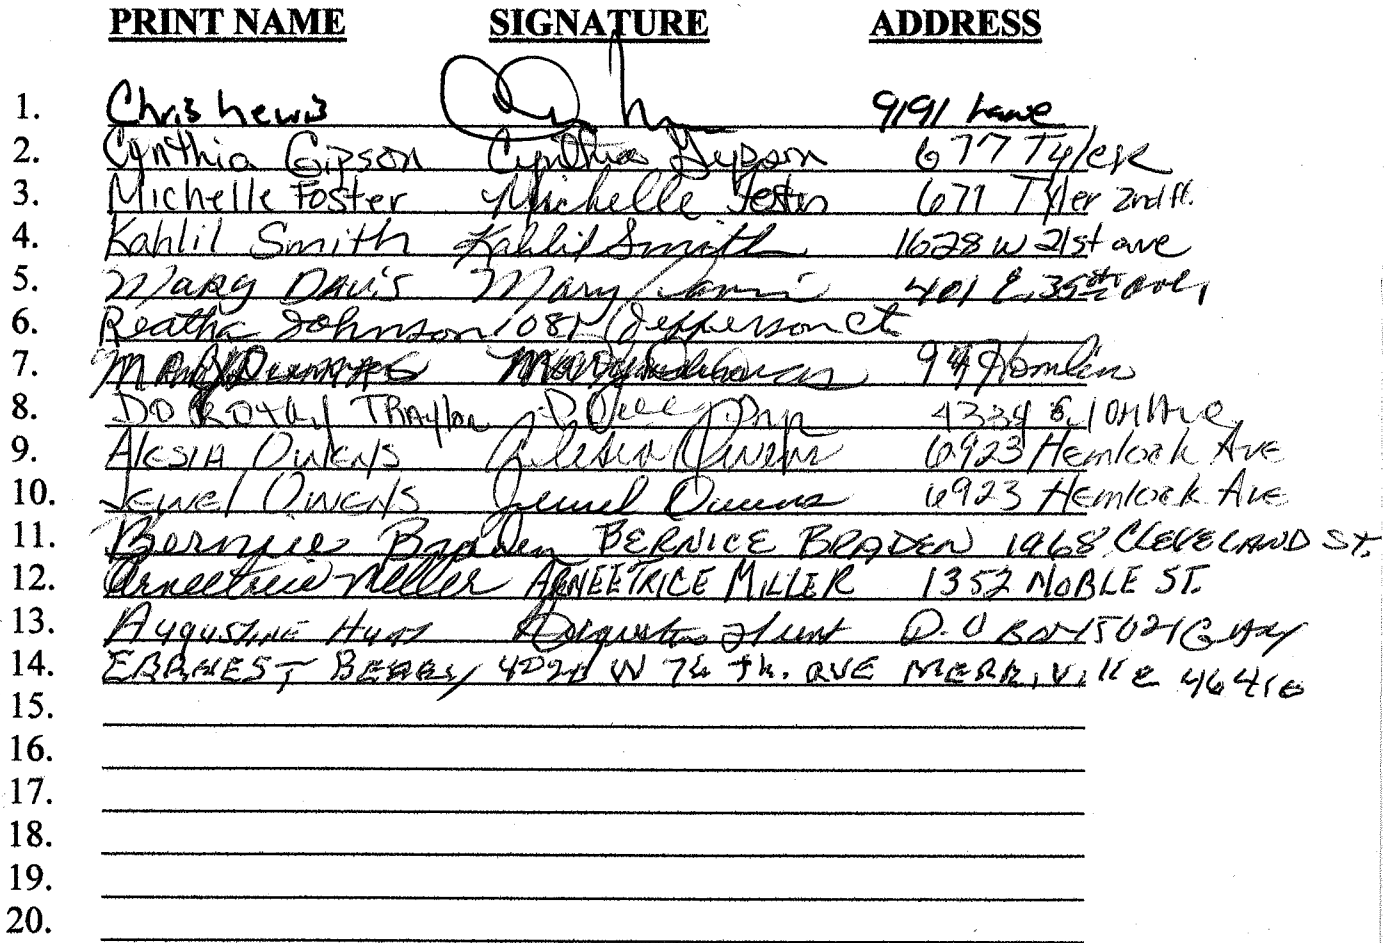 PRINT NAME SIGNATURE ADDRESS
1. Chris Lewis 9191 Lane
2. Cynthia Gipson Cynthia Gipson 677 Tyler
3. Michelle Foster Michelle Foster 671 Tyler 2nd fl.
4. Kahlil Smith Kahlil Smith 1628 W 21st ave
5. Mary Davis Mary Davis 401 E. 35th ave,
6. Reatha Johnson Jefferson Ct
7.
8. DOROTHY TRAylor
9. Alesia Owens Alesia Owens 6923 Hemlock Ave
10. Jewel Owens Jewel Owens 6923 Hemlock Ave
11. Bernice Braden BERNICE BRADEN 1968 CLEVELAND ST.
12. Arneetrice Miller ARNEETRICE MILLER 1352 NOBLE ST.
13. Augustine Hunt Augustine Hunt GARY
14. W 76 th. AVE
15.
16.
17.
18.
19.
20.